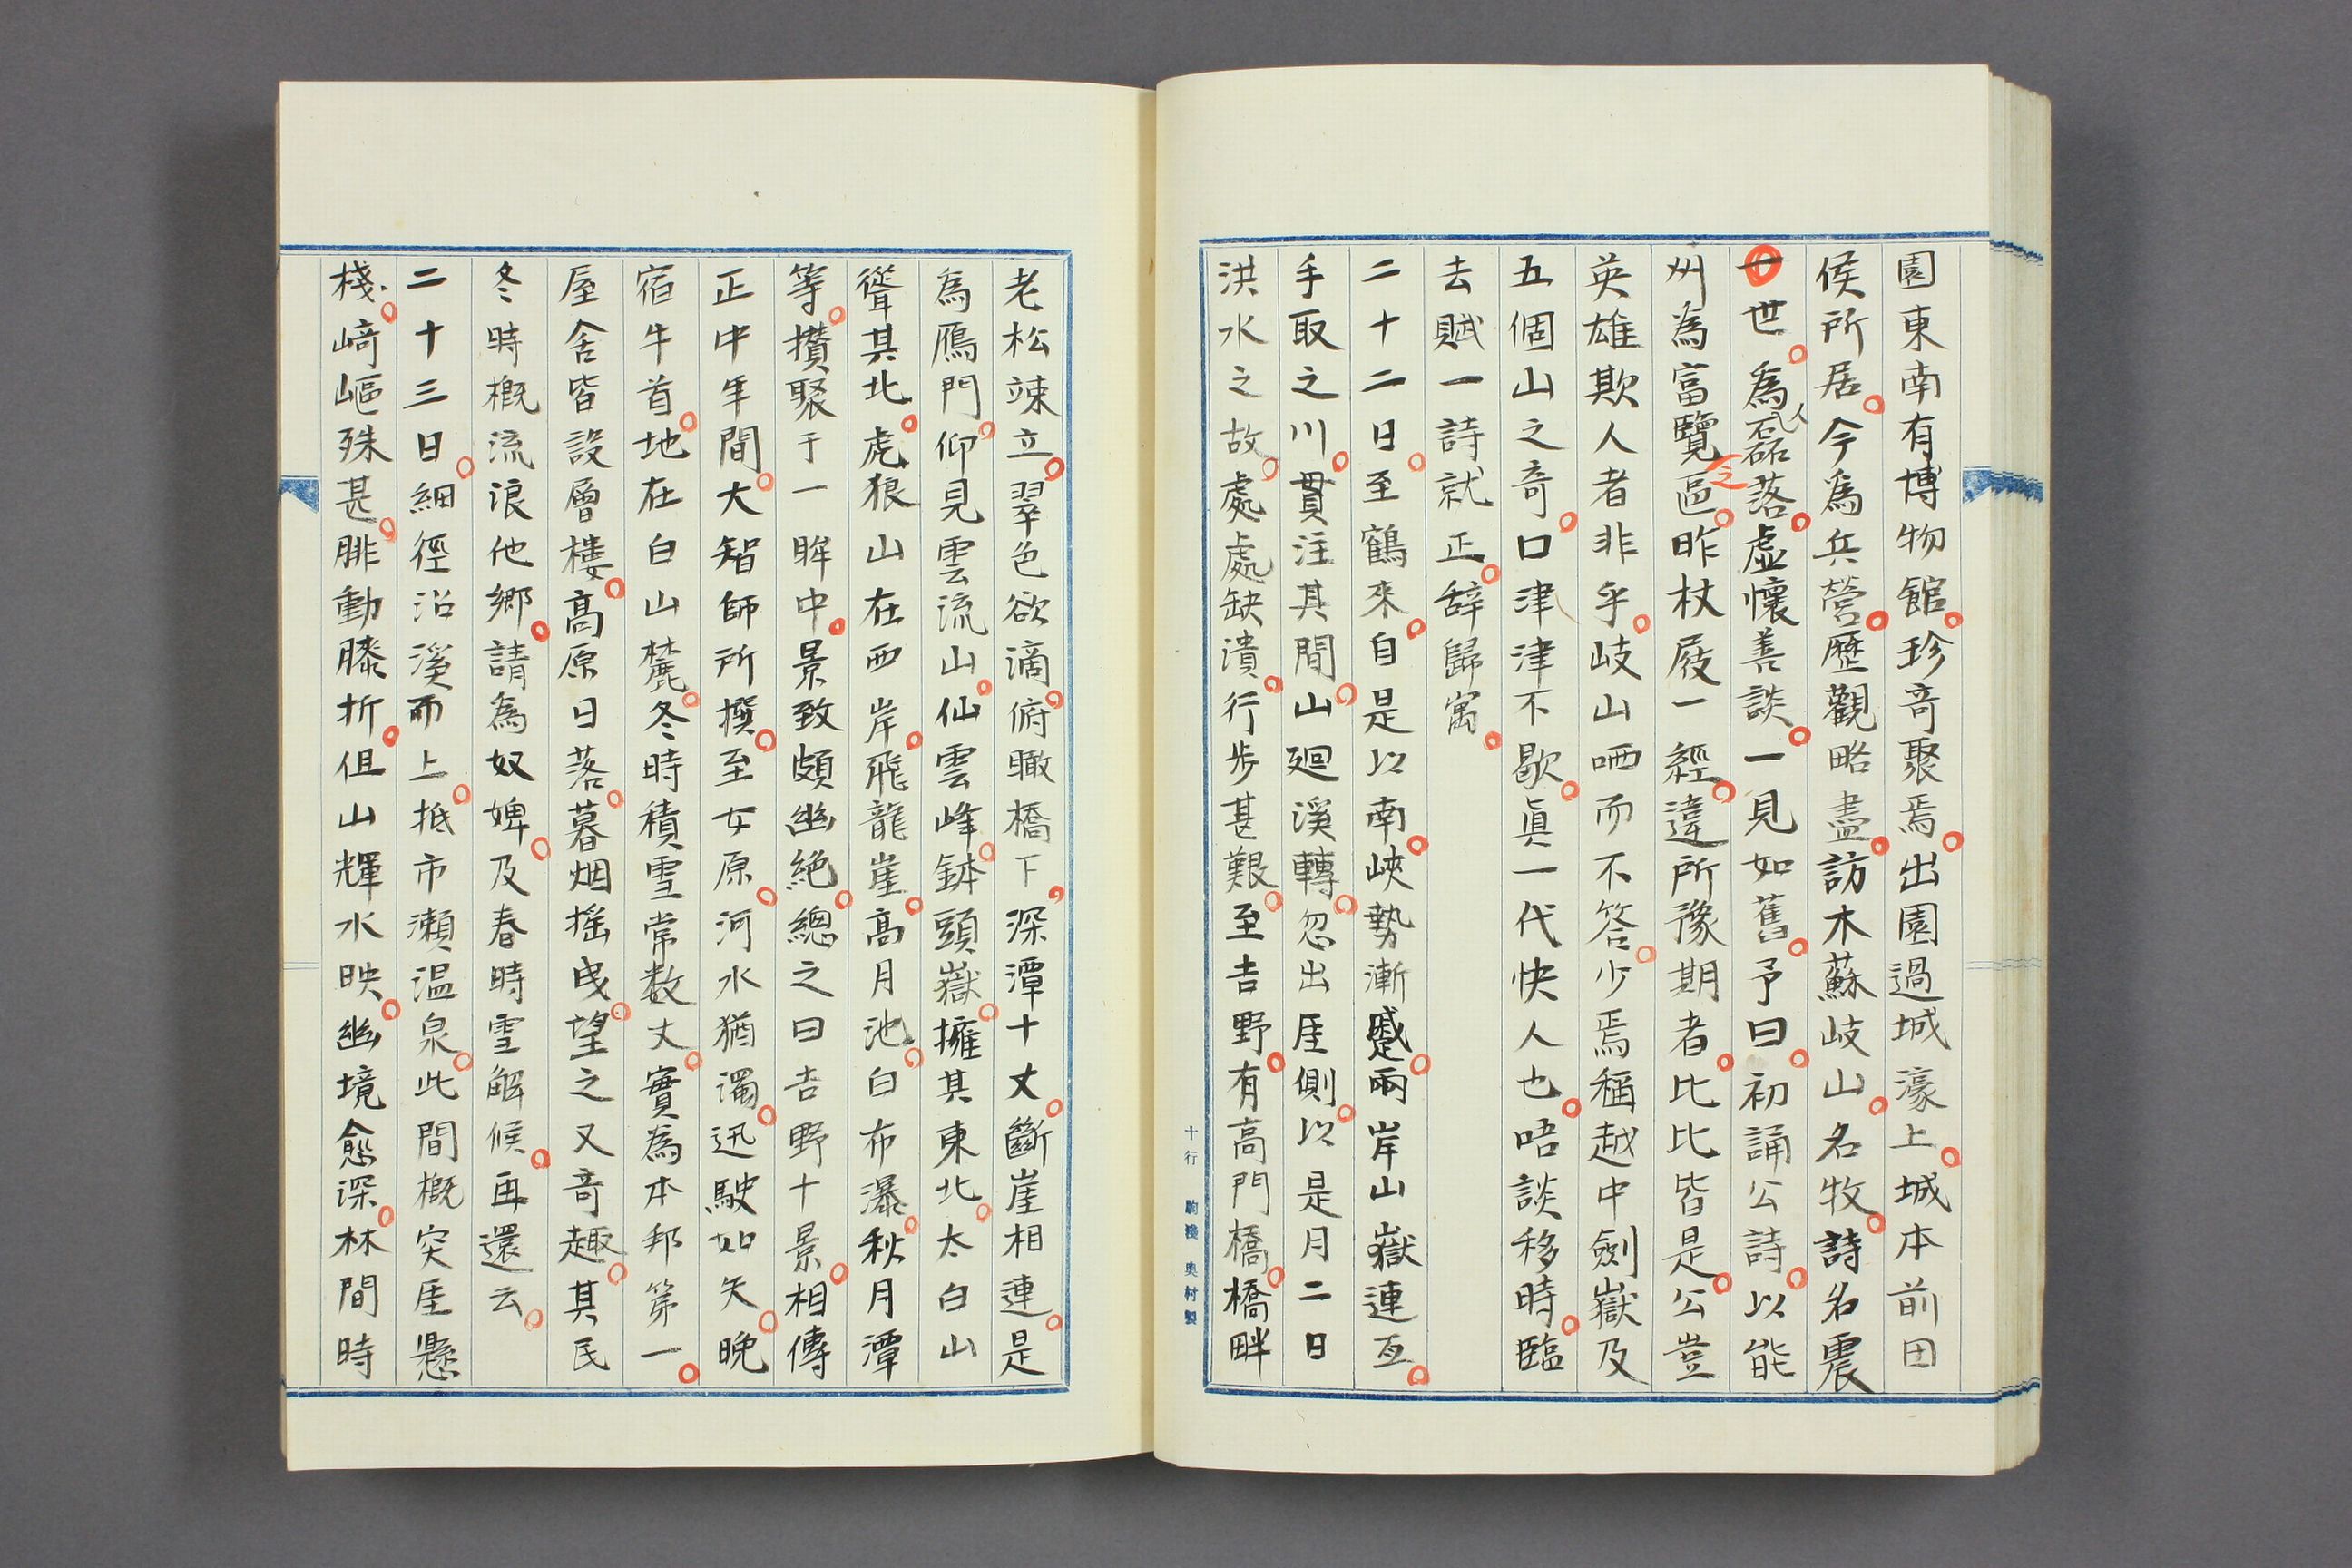 園東南有博物館。珍奇聚焉。出園過城濠上。城本前田
侯所居。今為兵營。歷觀略盡。訪木蘇岐山。名牧。詩名震
一世。為人磊落。虛懷善談。一見如舊。予曰。初誦公詩。以能
州為富覽之區。昨杖屐一經。違所豫期者。比比皆是。公豈
英雄欺人者非乎。岐山哂而不答。少焉稱越中劍嶽及
五個山之奇。口津津不歇。真一代快人也。唔談移時。臨
去賦一詩就正。辞歸寓。
二十二日。至鶴來。自是以南。峽勢漸蹙。兩岸山嶽連亙。
手取之川。貫注其間。山廻溪轉。忽出厓側。以是月二日
洪水之故。處處缺潰。行步甚艱。至吉野。有高門橋。橋畔
老松竦立。翠色欲滴。俯瞰橋下。深潭十丈。斷崖相連。是
為鴈門。仰見雲流山。仙雲峰。鉢頭嶽。擁其東北。太白山
聳其北。虎狼山在西岸。飛龍崖。高月池。白布瀑。秋月潭
等。攢聚于一眸中。景致頗幽絶。總之曰吉野十景。相傳
正中年間。大智師所撰。至女原。河水猶濁。迅駛如矢。晚
宿牛首。地在白山麓。冬時積雪常数丈。實為本邦第一。
屋舍皆設層樓。高原日落。暮烟搖曳。望之又奇趣。其民
冬時概流浪他鄉。請為奴婢。及春時雪解候。再還云。
二十三日。細徑沿溪而上。抵市瀨温泉。此間概突厓懸
棧。﨑嶇殊甚。腓動膝折。但山輝水映。幽境愈深。林間時
十行 奥村製